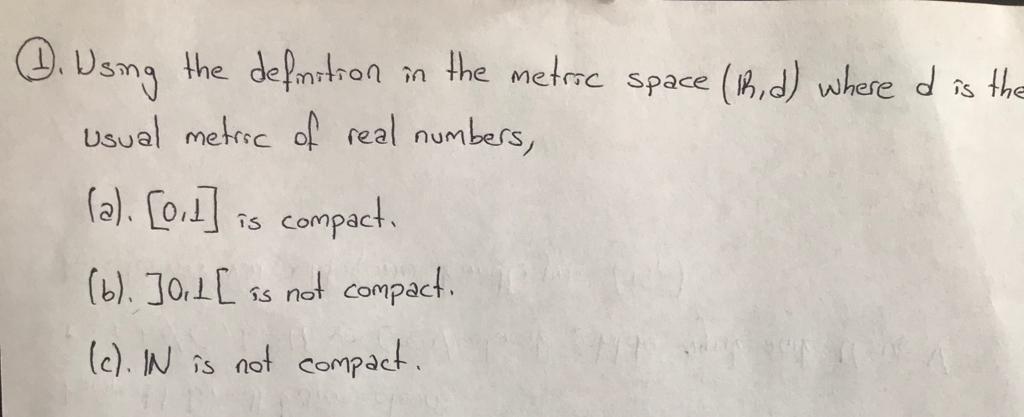 ①. Using the definition in the metric space (ℝ,d) where d is the
usual metric of real numbers,
(a). [0,1] is compact.
(b). ]0,1[ is not compact.
(c). ℕ is not compact.